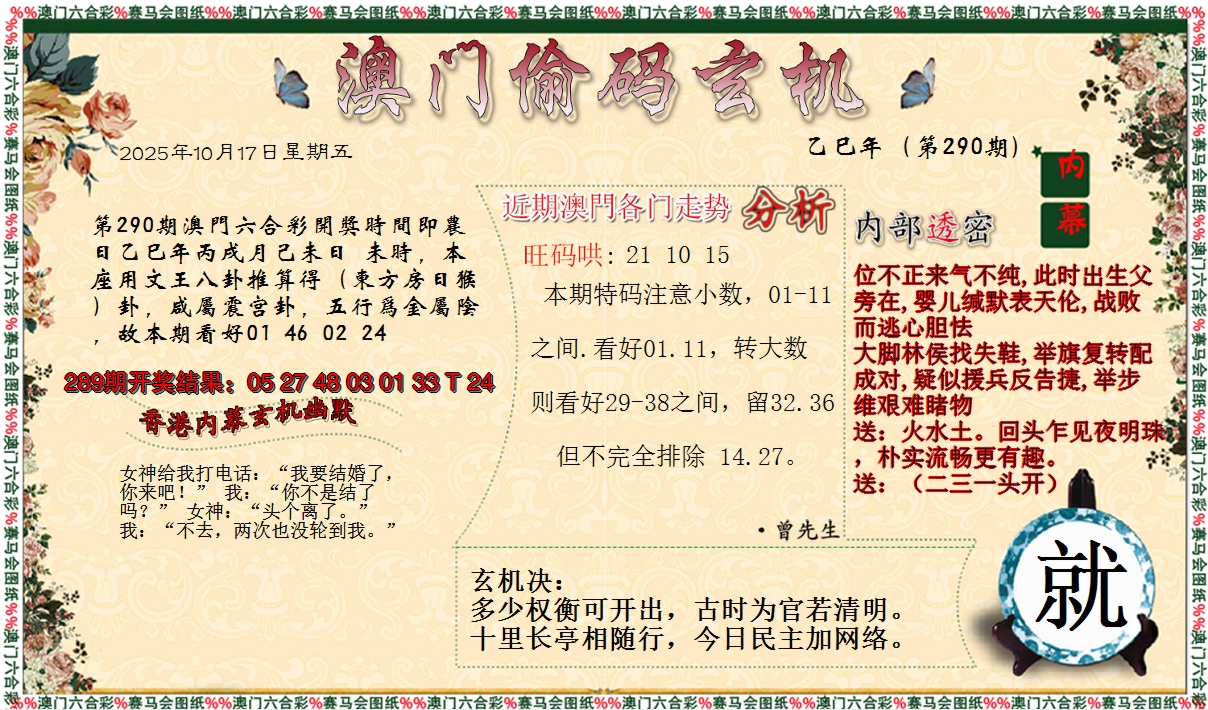 %%澳门六合彩%赛马会图纸%%澳门六合彩%赛马会图纸%%澳门六合彩%赛马会图纸%%澳门六合彩%赛马会图纸%%澳门六合彩%赛马会图纸%%澳门六合彩%赛马会图纸%%
澳门偷码玄机
2025年10月17日星期五
乙巳年（第290期）
内
幕
第290期澳門六合彩開獎時間即農
日乙巳年丙戌月己未日 未時，本
座用文王八卦推算得（東方房日猴
）卦，咸屬震宫卦，五行爲金屬陰
，故本期看好01 46 02 24
289期开奖结果：05 27 48 03 01 33 T 24
香港内幕玄机幽默
女神给我打电话：“我要结婚了，
你来吧！” 我：“你不是结了
吗？” 女神：“头个离了。”
我：“不去，两次也没轮到我。”
近期澳門各门走势 分析
旺码哄: 21 10 15
本期特码注意小数，01-11
之间.看好01.11，转大数
则看好29-38之间，留32.36
但不完全排除 14.27。
·曾先生
内部透密
位不正来气不纯,此时出生父
旁在,婴儿缄默表天伦,战败
而逃心胆怯
大脚林侯找失鞋,举旗复转配
成对,疑似援兵反告捷,举步
维艰难睹物
送：火水土。回头乍见夜明珠
，朴实流畅更有趣。
送：（二三一头开）
玄机决：
多少权衡可开出，古时为官若清明。
十里长亭相随行，今日民主加网络。
就
%%澳门六合彩%赛马会图纸%%澳门六合彩%赛马会图纸%%澳门六合彩%赛马会图纸%%澳门六合彩%赛马会图纸%%澳门六合彩%赛马会图纸%%澳门六合彩%赛马会图纸%%